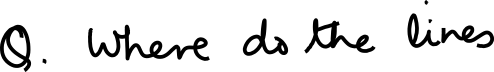 Q. Where do the lines